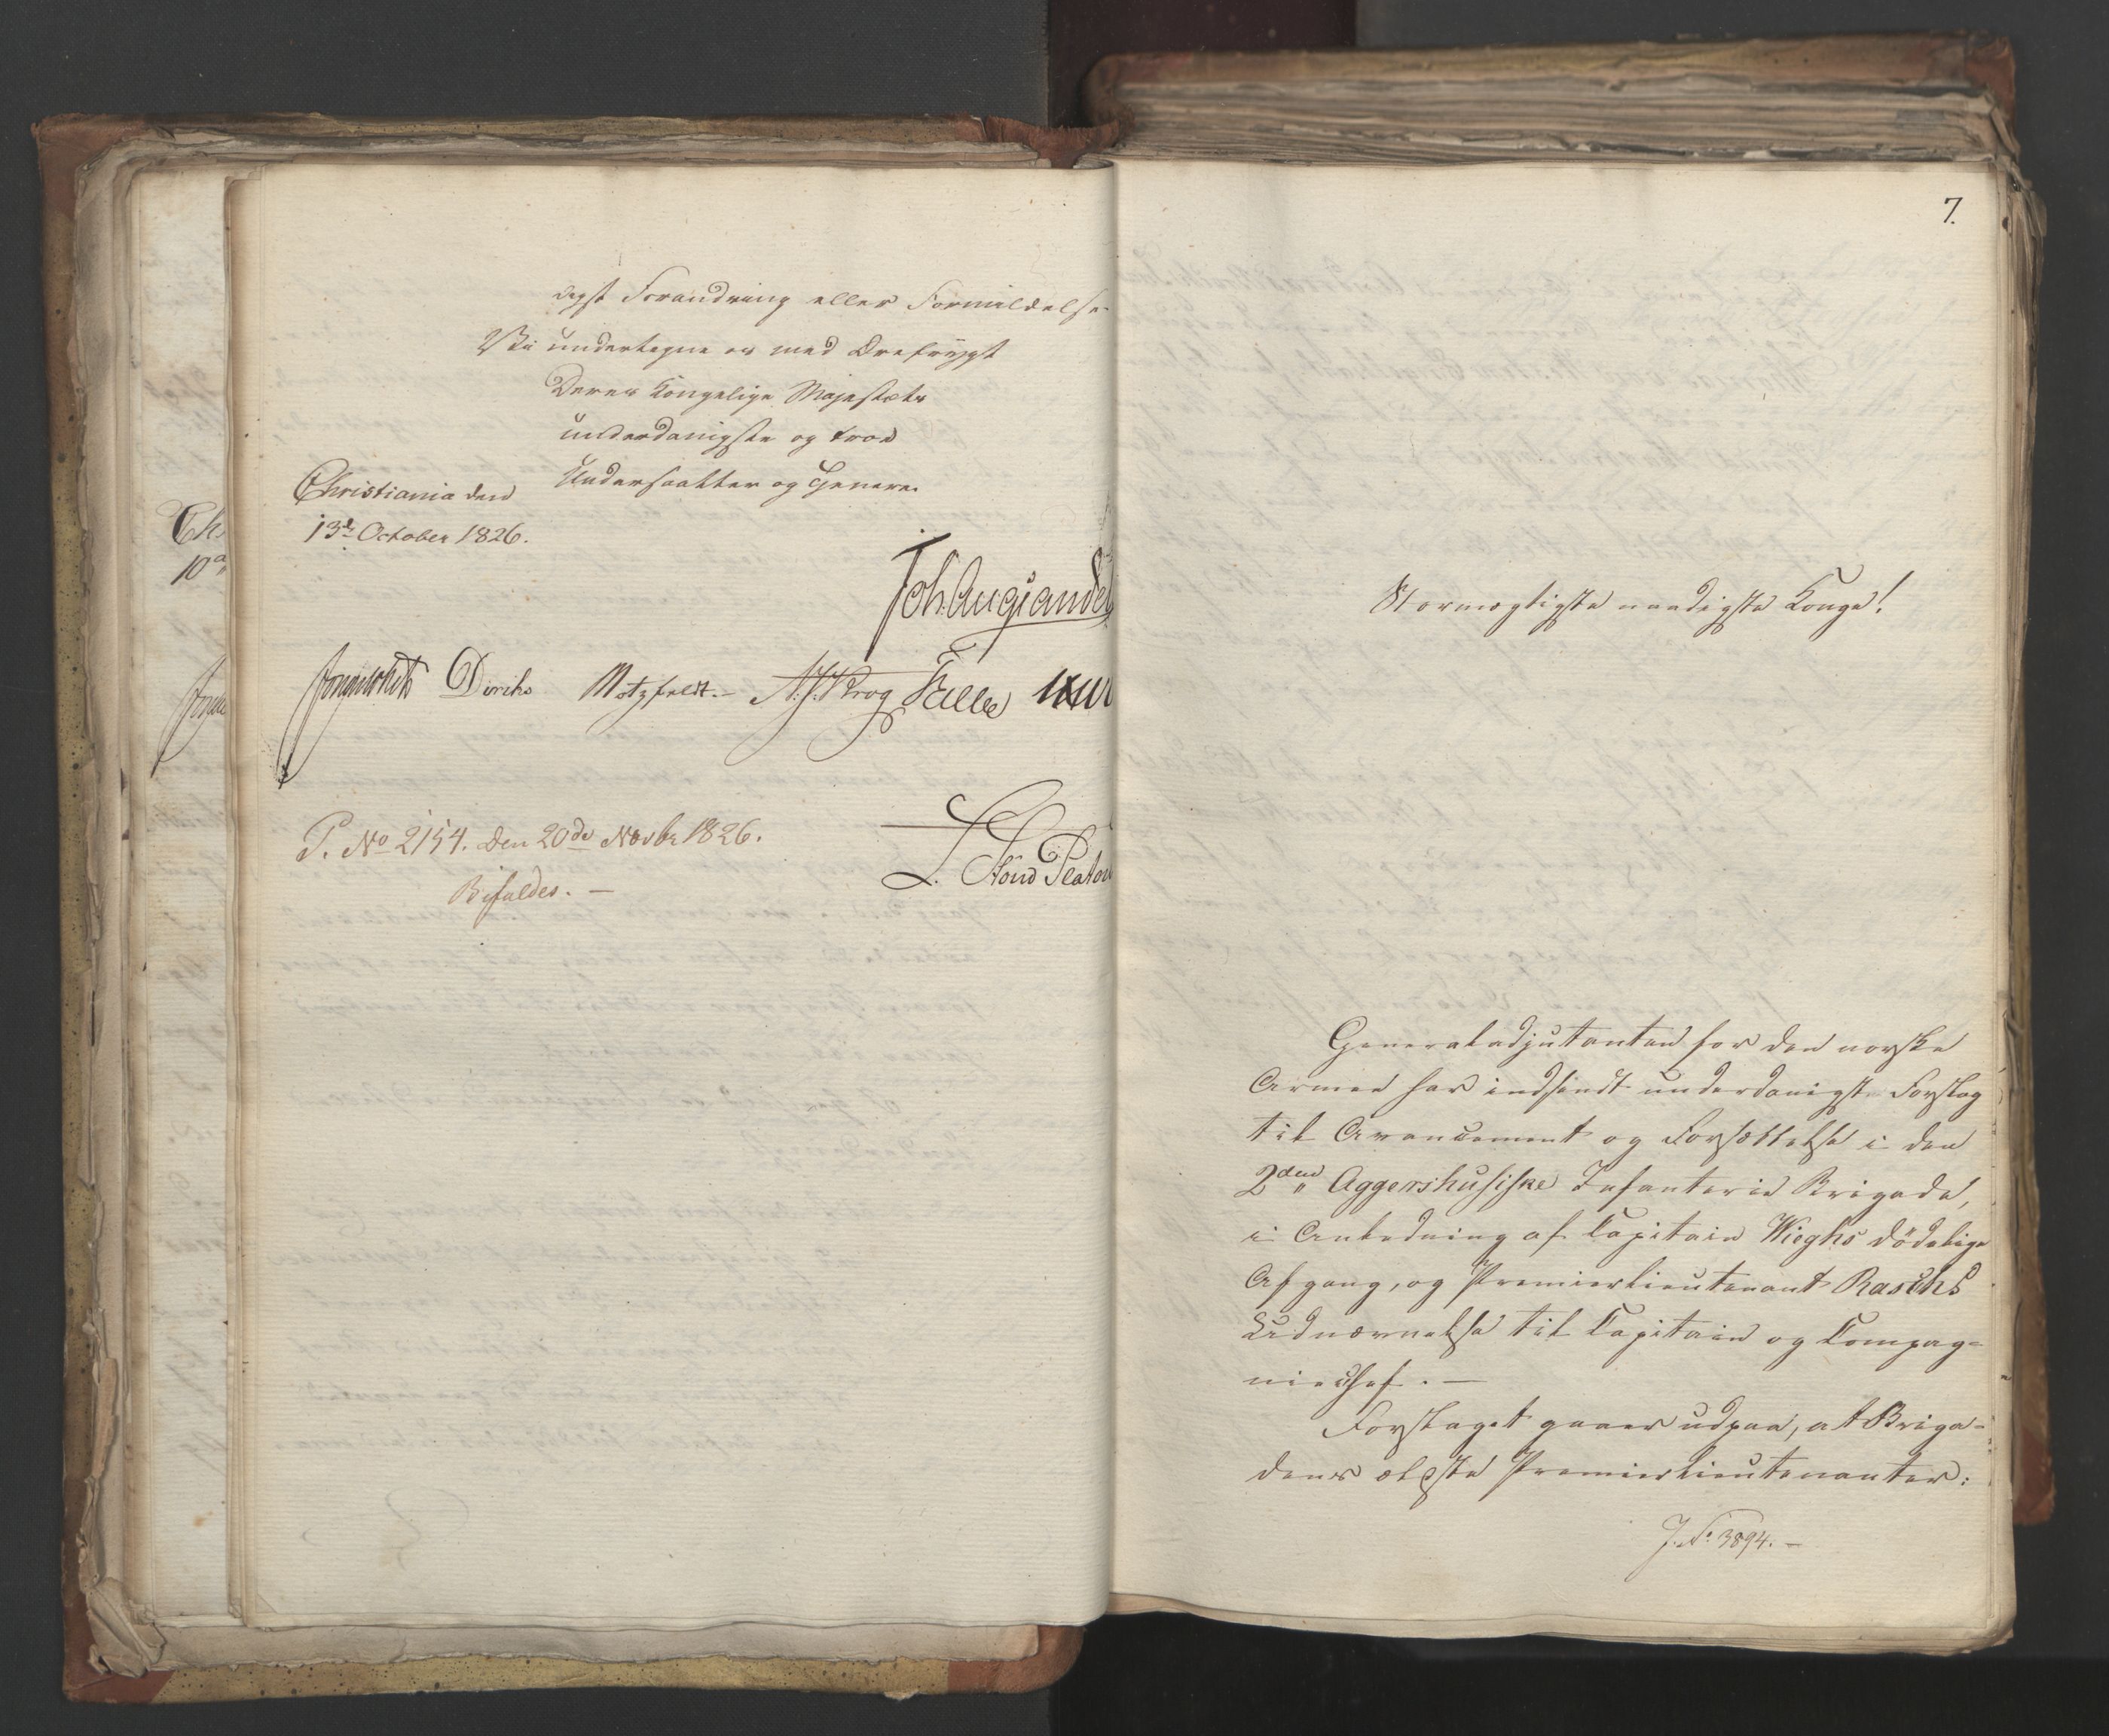 digst Forandring eller Formildelse.
Vi undertegne os med Ærefrygt
Deres Kongelige Majestæts
underdanigste og troe
Undersaatter og Tjenere.
Christiania den
13de October 1826.
Joh. Aug. Sandel
Diriks Motzfeldt. - Krog Falbe
P. No 2154. den 20de Novbr 1826.
Bifaldes. -
Ch
10
7.
Stormægtigste naadigste Konge!
Generaladjutanten for den norske
Armee har indsendt underdanigst Forslag
til Avancement og Forsættelse i den
2den Aggershusiske Infanterie Brigade,
i Anledning af Capitain Wieghs dödelige
Afgang, og Premierlieutenant Raschs
Udnævnelse til Capitain og Compag-
niechef. -
Forslaget gaaer udpaa, at Briga-
dens ældste Premierlieutenanter:
J. No. 3894. -